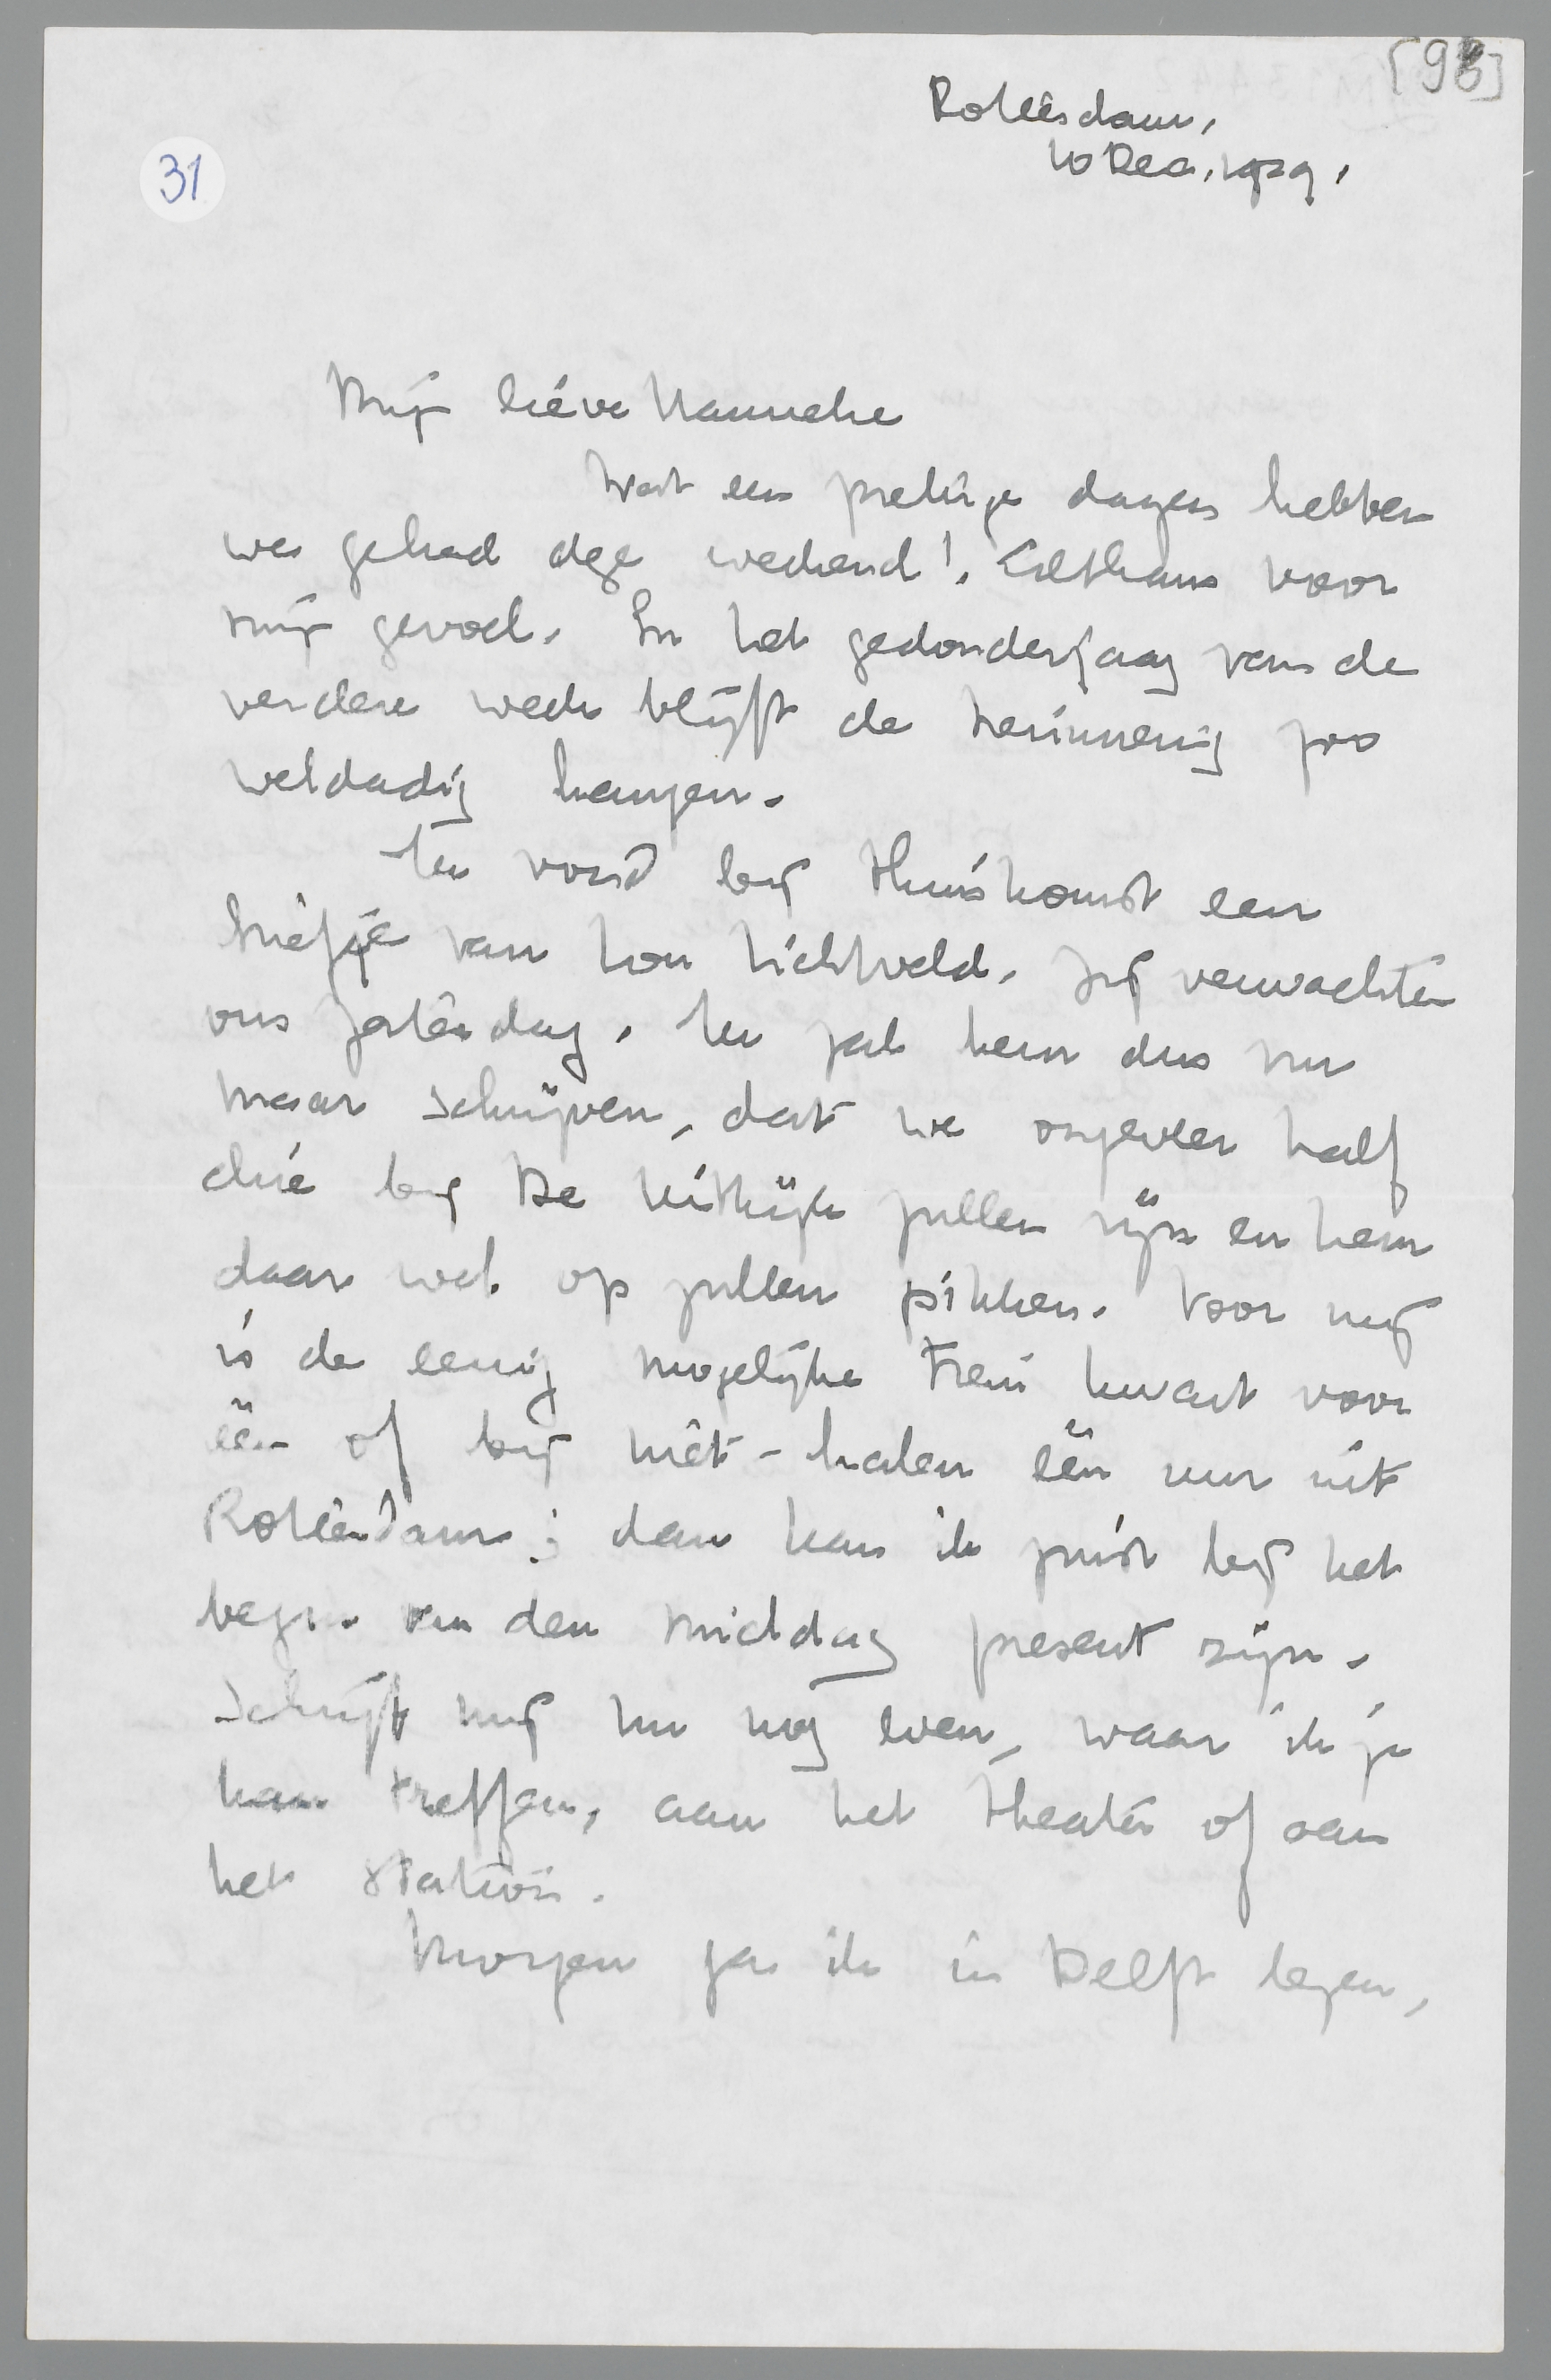 [93]
Rotterdam,
10 Dec. 1929.
31
Mijn lieve Hanneke
Wat een prettige dagen hebben
we gehad deze weekend! Althans voor
mijn gevoel. In het gedonderjaag van de
verdere week blijft de herinnering zoo
weldadig hangen.
Ik vond bij thuiskomst een
briefje van Lou Lichtveld. Zij verwachten
ons Zaterdag. Ik zal hem dus nu
maar schrijven, dat we ongeveer half
drie bij De Uitkijk zullen zijn en hem
daar wel op zullen pikken. Voor mij
is de eenig mogelijke trein kwart voor
één of bij niet-halen één uur uit
Rotterdam; dan kan ik juist bij het
begin van den middag present zijn.
Schrijft mij nu nog even, waar ik je
kan treffen, aan het theater of aan
het station.
Morgen ga ik in Delft lezen,